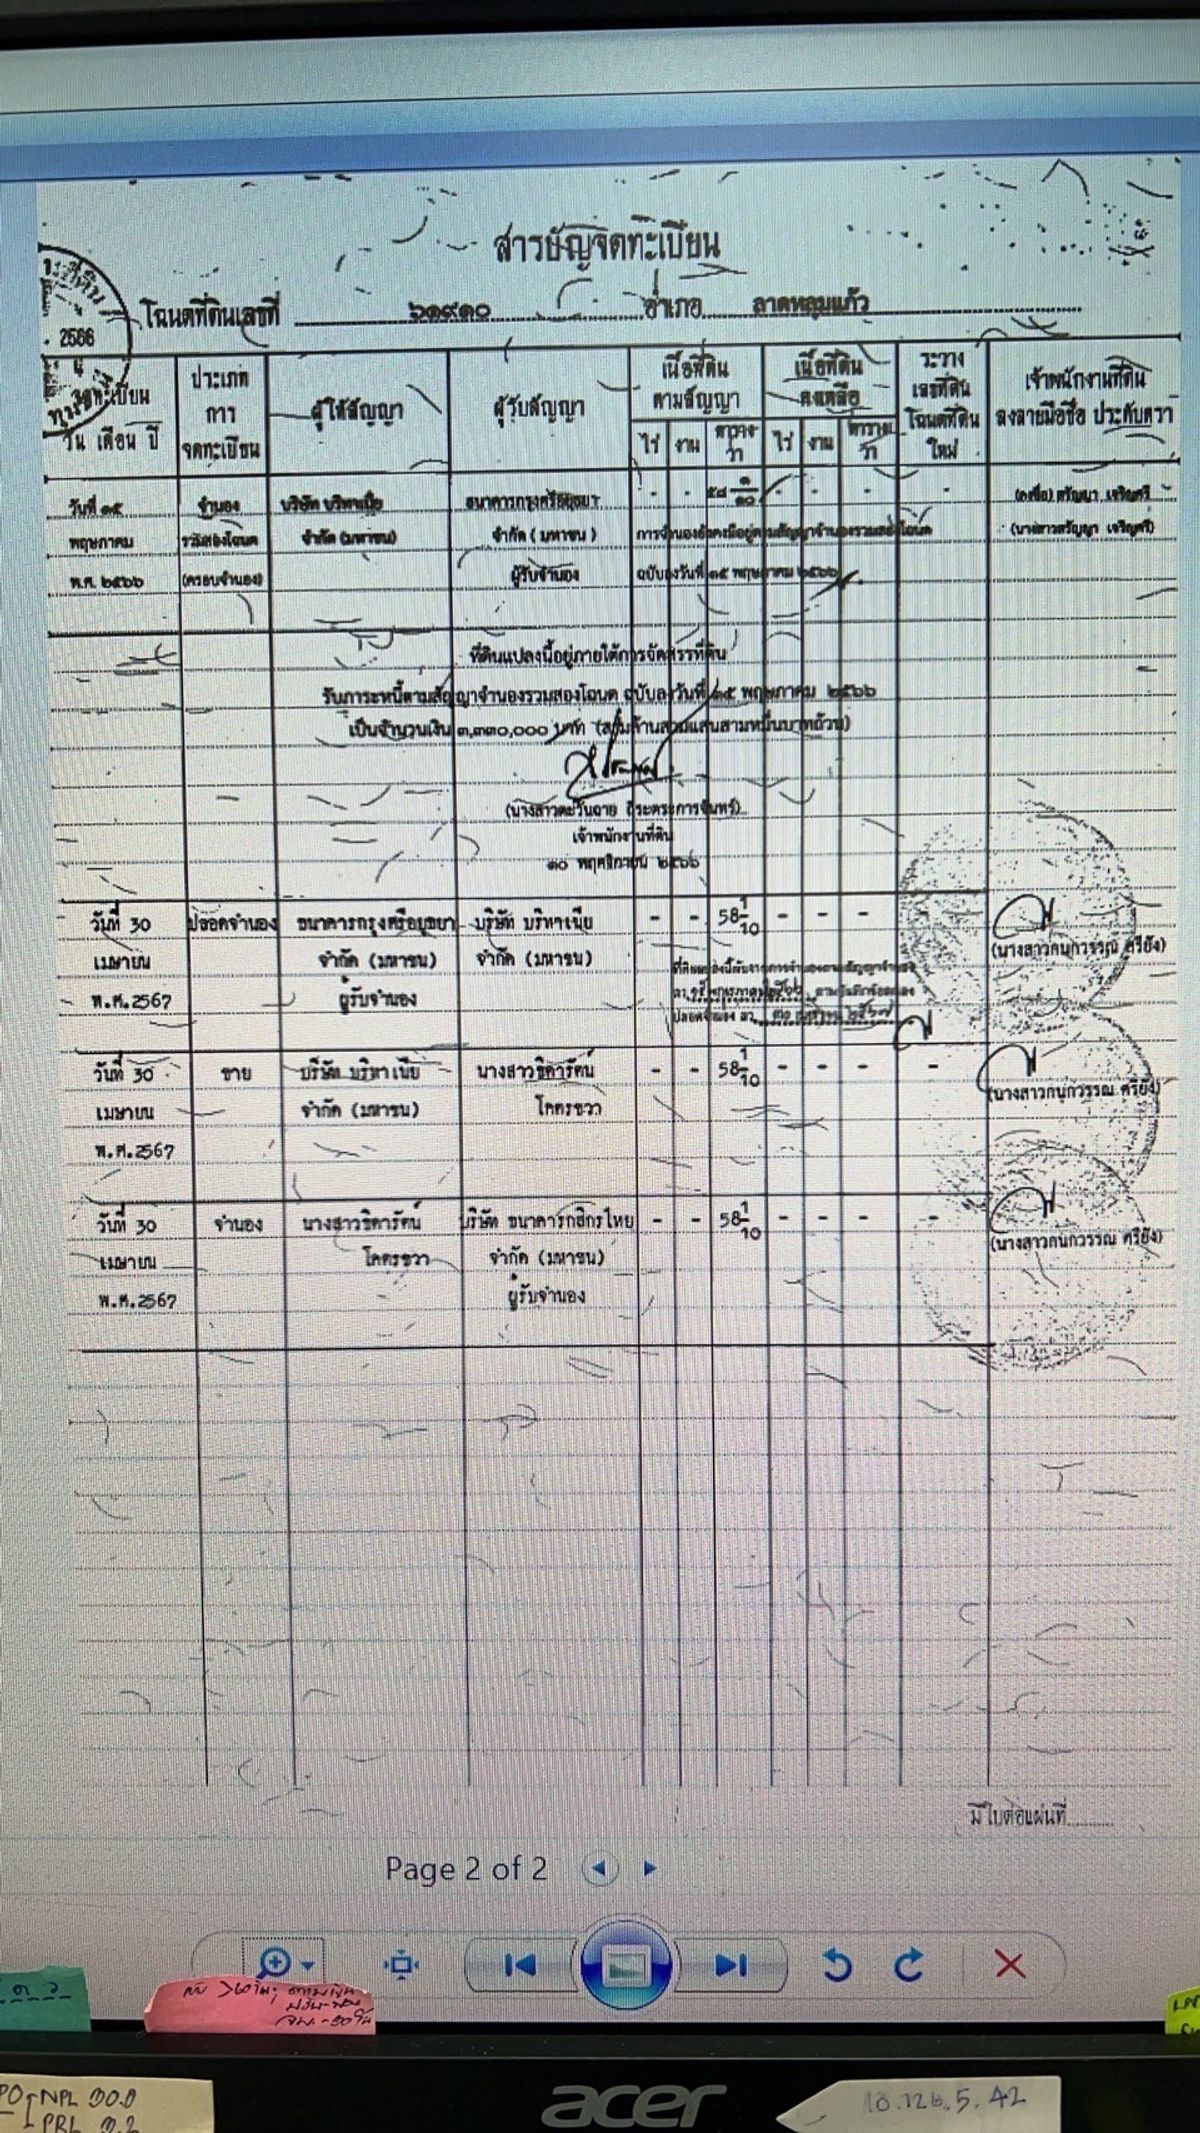 สารบัญจดทะเบียน
โฉนดที่ดินเลขที่ ๖๑๙๑๐ อำเภอ ลาดหลุมแก้ว
2566
จดทะเบียน
วัน เดือน ปี
ประเภท
การ
จดทะเบียน
ผู้ให้สัญญา
ผู้รับสัญญา
เนื้อที่ดิน
ตามสัญญา
ไร่ งาน ตาราง
วา
เนื้อที่ดิน
คงเหลือ
ไร่ งาน ตาราง
วา
ระวาง
เลขที่ดิน
โฉนดที่ดิน
ใหม่
เจ้าพนักงานที่ดิน
ลงลายมือชื่อ ประทับตรา
วันที่ ๑๕ จำนอง บริษัท บริทาเนีย ธนาคารกรุงศรีอยุธยา - - ๕๘ ๑/๑๐ - - - - (ลงชื่อ) ศรัญญา เจริญศรี
พฤษภาคม รวมสองโฉนด จำกัด (มหาชน) จำกัด (มหาชน) การจำนองยังคงมีอยู่ตามสัญญาจำนองรวมสองโฉนด (นางสาวศรัญญา เจริญศรี)
พ.ศ. ๒๕๖๖ (ครอบจำนอง) ผู้รับจำนอง ฉบับลงวันที่ ๑๕ พฤษภาคม ๒๕๖๖
ที่ดินแปลงนี้อยู่ภายใต้การจัดสรรที่ดิน
รับภาระหนี้ตามสัญญาจำนองรวมสองโฉนด ฉบับลงวันที่ ๑๕ พฤษภาคม ๒๕๖๖
เป็นจำนวนเงิน ๓,๓๓๐,๐๐๐ บาท (สามล้านสามแสนสามหมื่นบาทถ้วน)
เจ้าพนักงานที่ดิน
๑๐ พฤศจิกายน ๒๕๖๖
วันที่ 30 ปลอดจำนอง ธนาคารกรุงศรีอยุธยา บริษัท บริทาเนีย - - 58 1/10 - - - -
เมษายน จำกัด (มหาชน) จำกัด (มหาชน) (นางสาวกนกวรรณ ศรียัง)
พ.ศ.2567 ผู้รับจำนอง
วันที่ 30 ขาย บริษัท บริทาเนีย นางสาวธิดารัตน์ - - 58 1/10 - - - -
เมษายน จำกัด (มหาชน) โคตรชวา (นางสาวกนกวรรณ ศรียัง)
พ.ศ.2567
วันที่ 30 จำนอง นางสาวธิดารัตน์ บริษัท ธนาคารกสิกรไทย - - 58 1/10 - - - -
เมษายน โคตรชวา จำกัด (มหาชน) (นางสาวกนกวรรณ ศรียัง)
พ.ศ.2567 ผู้รับจำนอง
มีใบต่อแผ่นที่
Page 2 of 2
NPL
acer
10.126.5.42